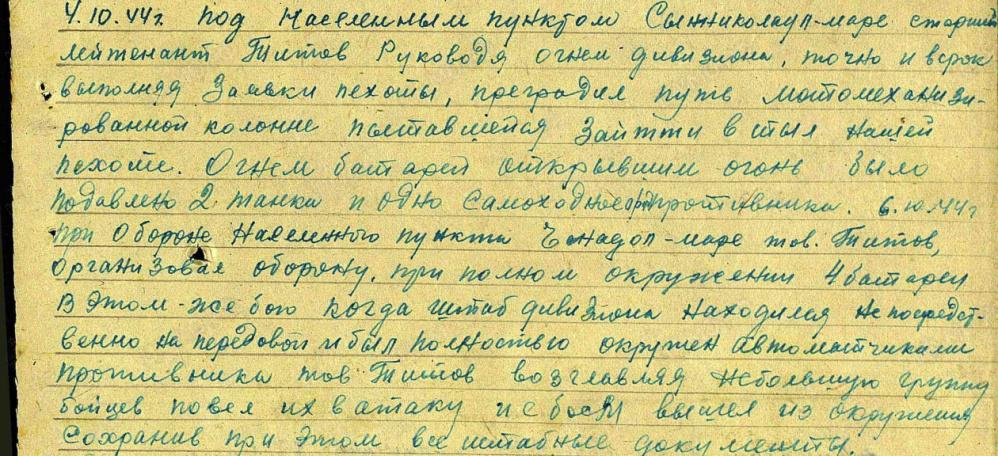 4.10.44г. под населенным пунктом Сынниколаул-маре старший
лейтенант Титов Руководя огнем дивизиона, точно и в срок
выполняя Заявки пехоты, преградил путь мотомеханизи-
рованной колонне пытавшейся Зайтти в тыл нашей
пехоте. Огнем батарей открывшим огонь было
подавлено 2 танка и одно Самоходное противника. 6.10.44г
при Обороне Населенного пункта Чанадул-маре тов. Титов,
организовал оборону, при полном окружении 4 батареи
В этом-же бою когда штаб дивизиона находился непосредст-
венно на передовой и был полностью окружен автоматчиками
противника тов Титов возглавляя небольшую группу
бойцев повел их в атаку и с боем вышел из окружения
Сохранив при этом все штабные документы.